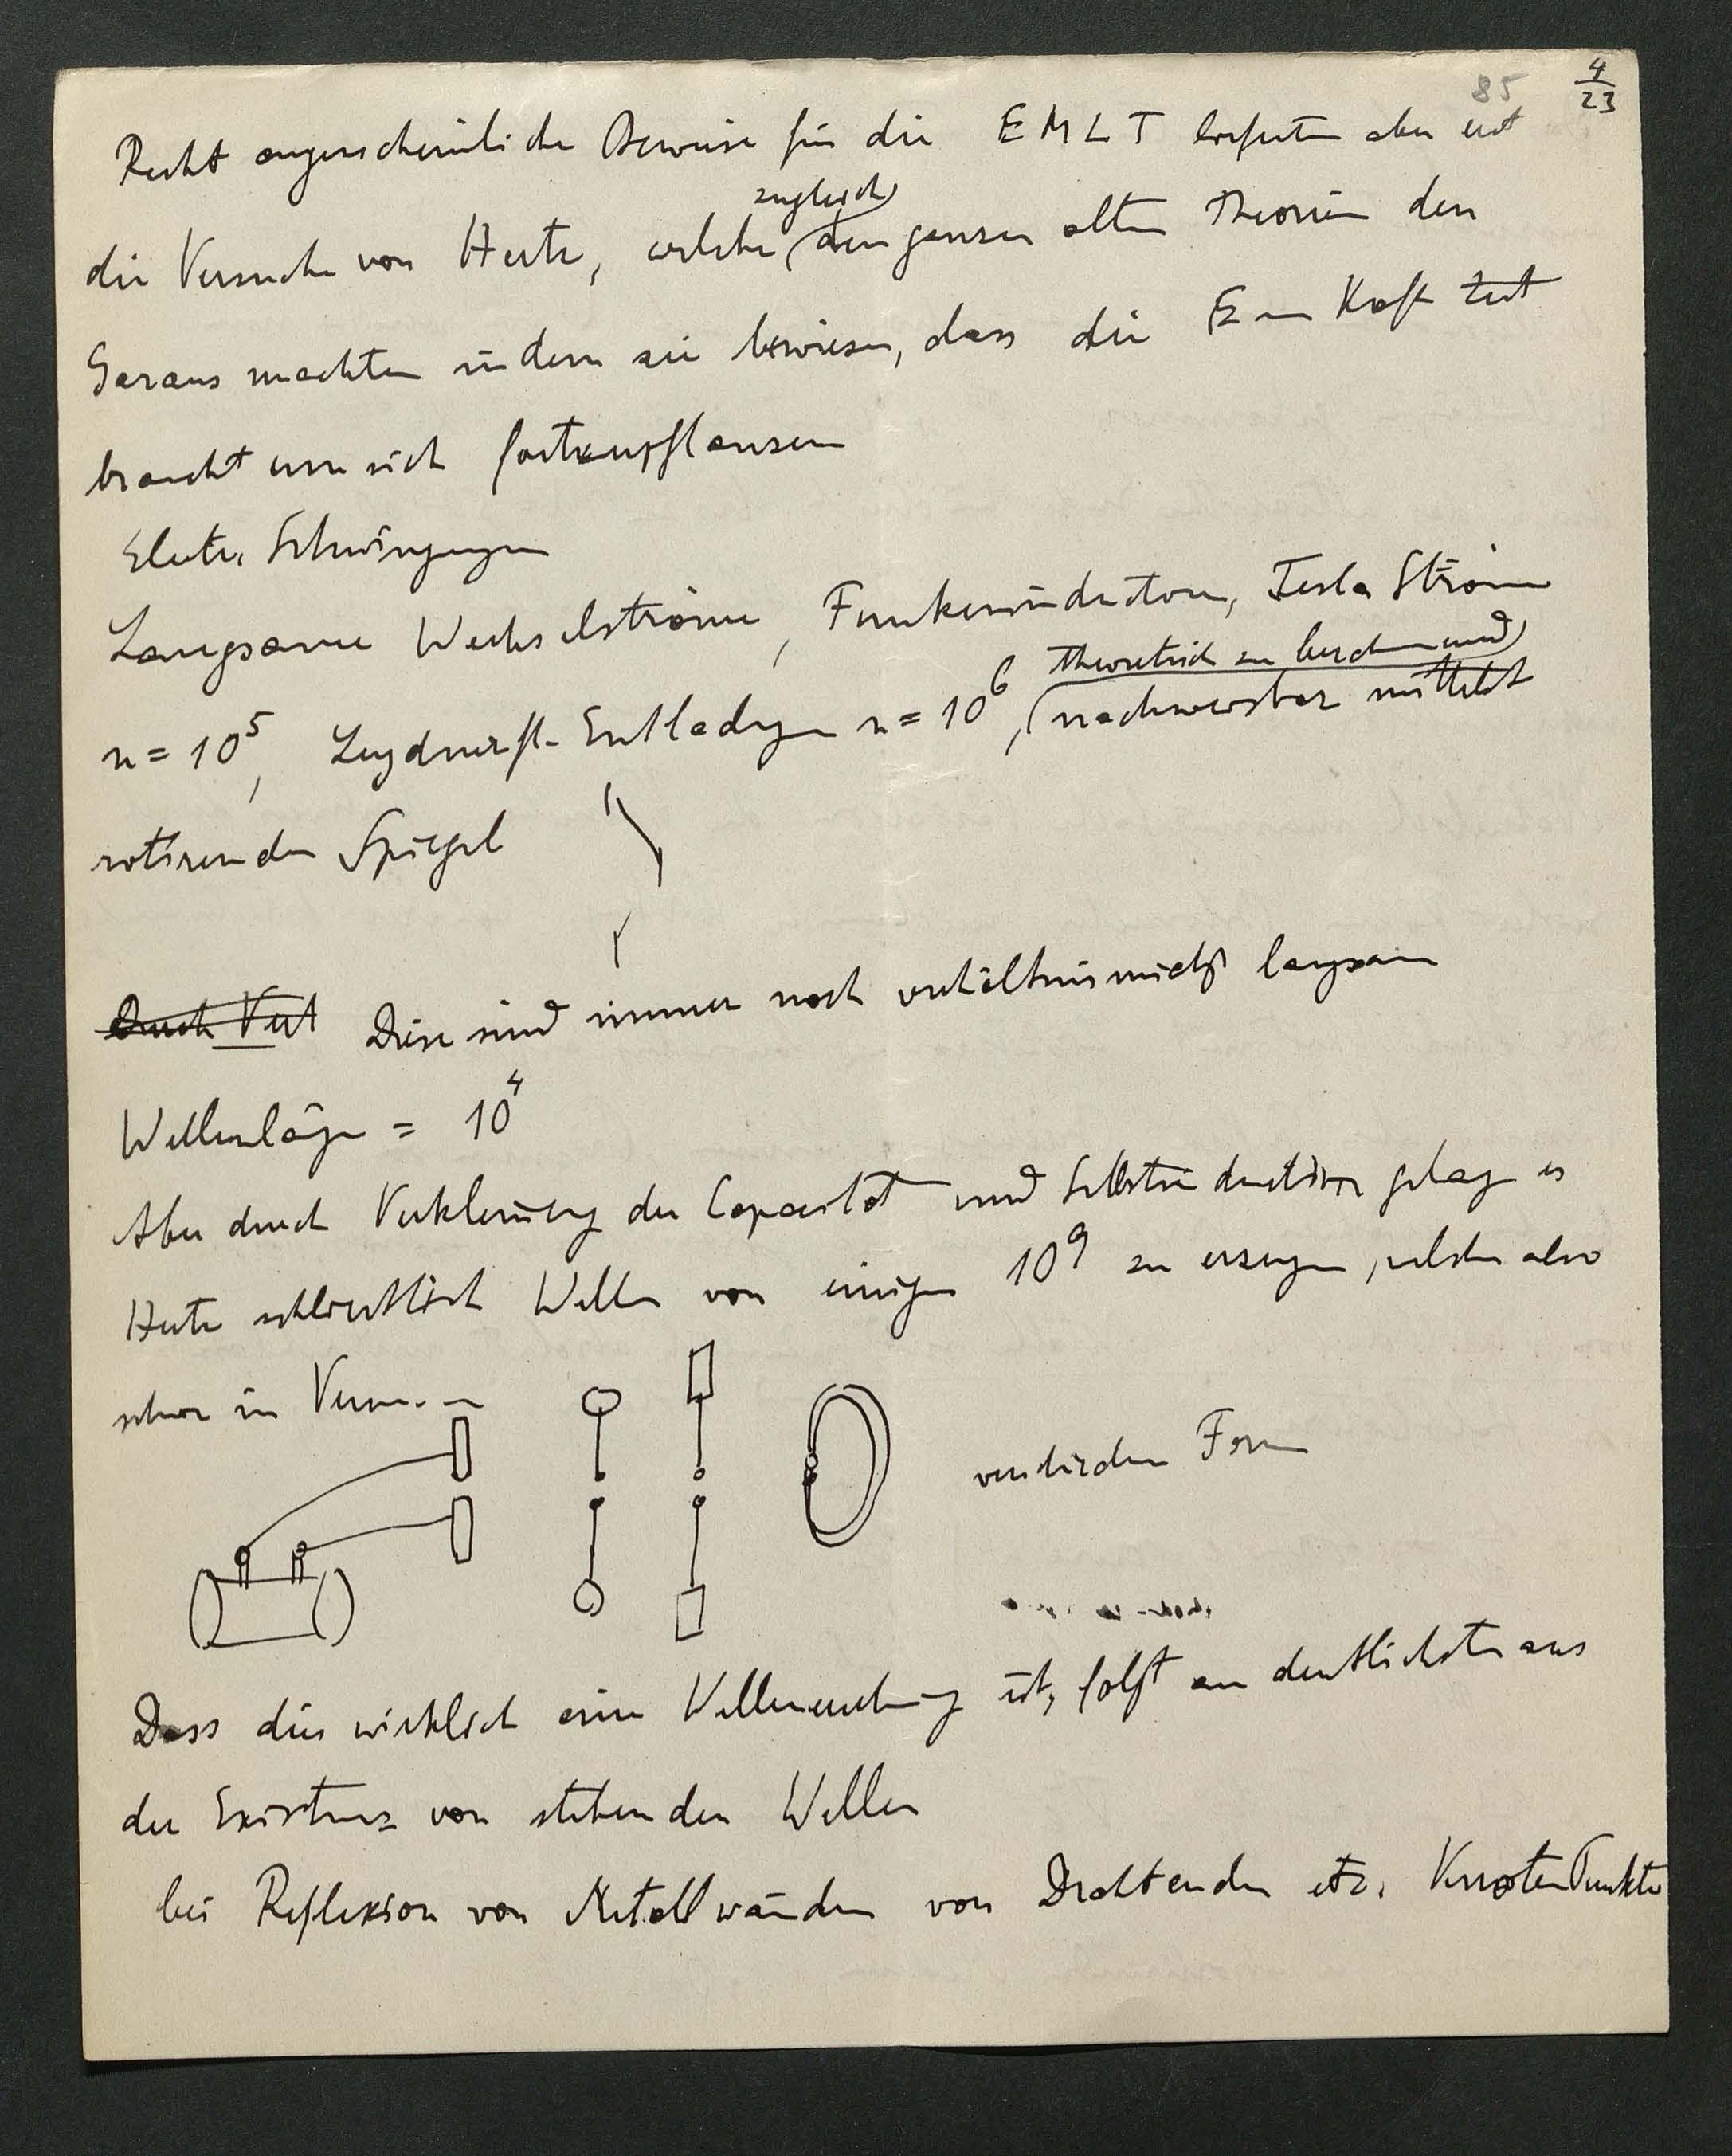 85 4/23
Recht augenscheinliche Beweise für die EMLT lieferten aber erst
zugleich
die Versuche von Hertz, welche den ganzen alten Theorien den
Garaus machten indem sie bewiesen, dass die E Kraft Zeit
braucht um sich fortzupflanzen
Elektr. Schwingungen
Langsame Wechselströme, Funkeninductoren, Tesla Ströme
theoretisch zu berechnen und
n = 10⁵, Leydnerfl. Entladungen n = 10⁶, nachweisbar mittelst
rotirenden Spiegel
Durch Ver Diese sind immer noch verhältnismäßig langsam
Wellenlänge = 10⁴
Aber durch Verkleinerung der Capacität und Selbstinduction gelang es
Hertz schließlich Wellen von einigen 10⁹ zu erzeugen, welche also
schon in
verschiedene Form
Dass dies wirklich eine Wellenbewegung ist, folgt am deutlichsten aus
der Existenz von stehenden Wellen
bei Reflexion von Metallwänden von Drahtenden etz. Knoten Punkte